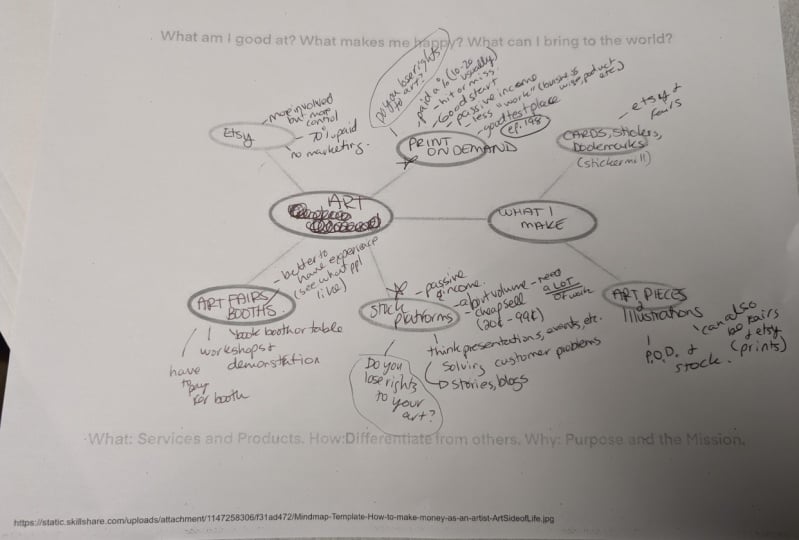 What am I good at? What makes me happy? What can I bring to the world?
Do you lose rights
to art?
- paid a % (10-20
usually)
- hit or miss.
- Good start
- passive income
- less "work" (business
wise, product
etc.)
- good test place
ep. 198
PRINT
ON DEMAND
Etsy
- more involved
but more
control
- 70% paid
no marketing.
- etsy &
fairs
CARDS, Stickers,
bookmarks
(stickermill)
ART
WHAT I
MAKE
ART FAIRS/
BOOTHS.
- better to
have experience
(see what ppl
like)
book booth or table
workshops &
demonstration
have
to pay
for booth
Stock
platforms
- passive
income.
- about volume - need
a LOT
of work
- cheap sell
(20¢ - 99¢)
think presentations, events, etc.
Solving customer problems
stories, blogs
Do you
lose rights
to your
art?
ART PIECES
Illustrations
P.O.D. &
stock.
can also
be fairs
& etsy
(prints)
What: Services and Products. How:Differentiate from others. Why: Purpose and the Mission.
https://static.skillshare.com/uploads/attachment/1147258306/f31ad472/Mindmap-Template-How-to-make-money-as-an-artist-ArtSideofLife.jpg